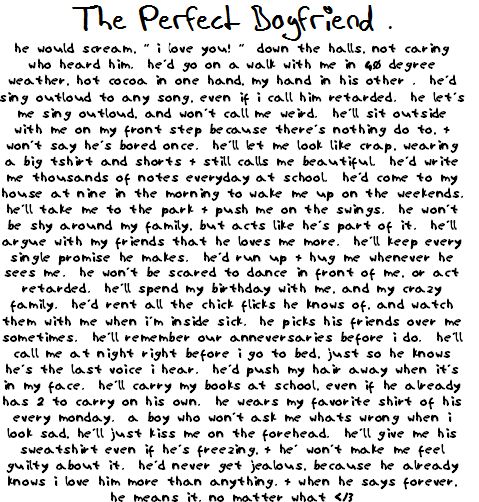 The Perfect Boyfriend .
he would scream, " i love you! " down the halls, not caring
who heard him. he'd go on a walk with me in 40 degree
weather, hot cocoa in one hand, my hand in his other . he'd
sing outloud to any song, even if i call him retarded. he let's
me sing outloud, and won't call me weird. he'll sit outside
with me on my front step because there's nothing do to, +
won't say he's bored once. he'll let me look like crap, wearing
a big tshirt and shorts + still calls me beautiful. he'd write
me thousands of notes everyday at school. he'd come to my
house at nine in the morning to wake me up on the weekends.
he'll take me to the park + push me on the swings. he won't
be shy around my family, but acts like he's part of it. he'll
argue with my friends that he loves me more. he'll keep every
single promise he makes. he'd run up + hug me whenever he
sees me. he won't be scared to dance in front of me, or act
retarded. he'll spend my birthday with me, and my crazy
family. he'd rent all the chick flicks he knows of, and watch
them with me when i'm inside sick. he picks his friends over me
sometimes. he'll remember our anneversaries before i do. he'll
call me at night right before i go to bed, just so he knows
he's the last voice i hear. he'd push my hair away when it's
in my face. he'll carry my books at school, even if he already
has 2 to carry on his own. he wears my favorite shirt of his
every monday. a boy who won't ask me whats wrong when i
look sad, he'll just kiss me on the forehead. he'll give me his
sweatshirt even if he's freezing, + he' won't make me feel
guilty about it. he'd never get jealous, because he already
knows i love him more than anything. + when he says forever,
he means it. no matter what </3